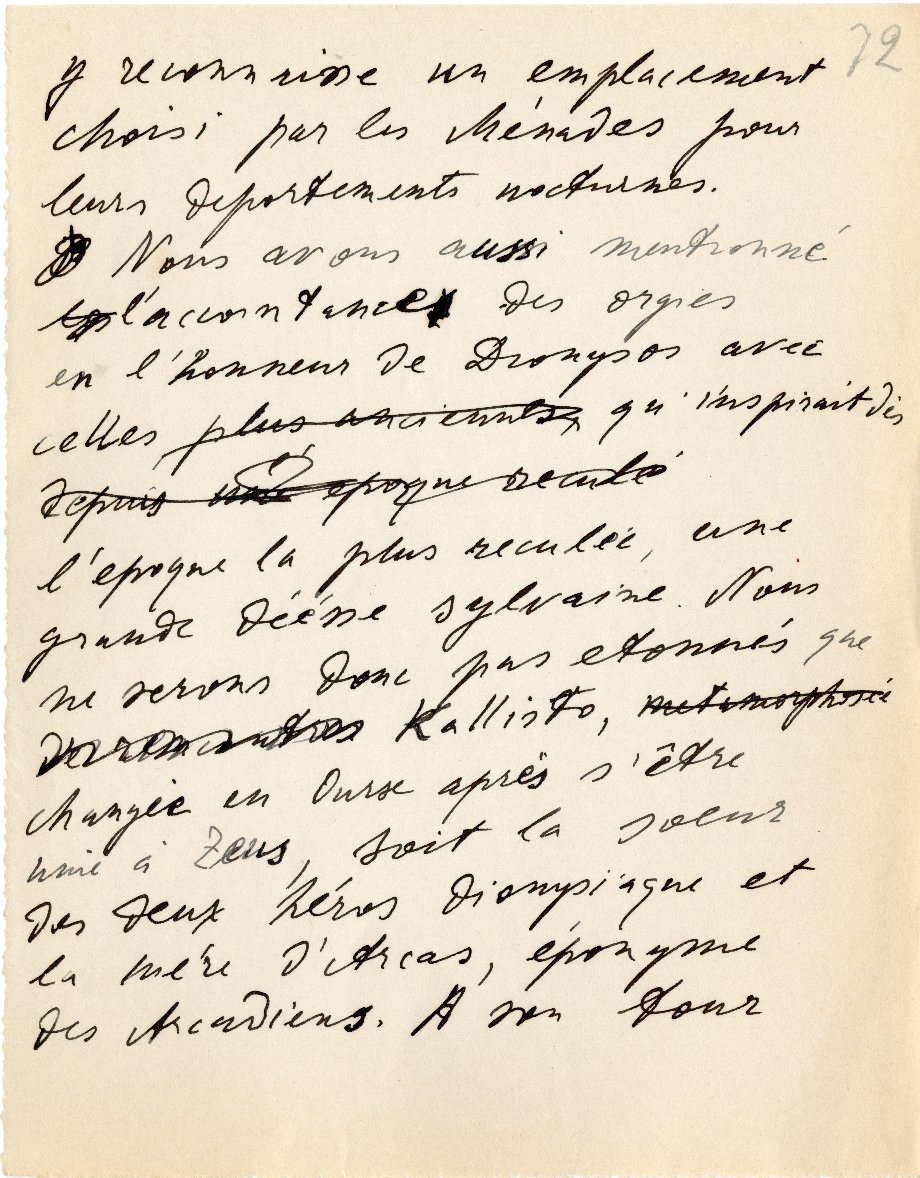 72
y reconnaisse un emplacement
choisi par les Ménades pour
leurs deportements nocturnes.
Nous avons aussi mentionné
l'accointance des orgies
en l'honneur de Dionysos avec
celles plus anciennes, qu'inspirait dès
depuis une epoque reculé
l'epoque la plus reculée, une
grande déesse sylvaine. Nous
ne serons donc pas etonnés que
Kallisto, metamorphosée
changée en Ourse après s'être
unie à Zeus, soit la soeur
des deux héros dionysiaque et
la mère d'Arcas, éponyme
des Arcadiens. A son tour